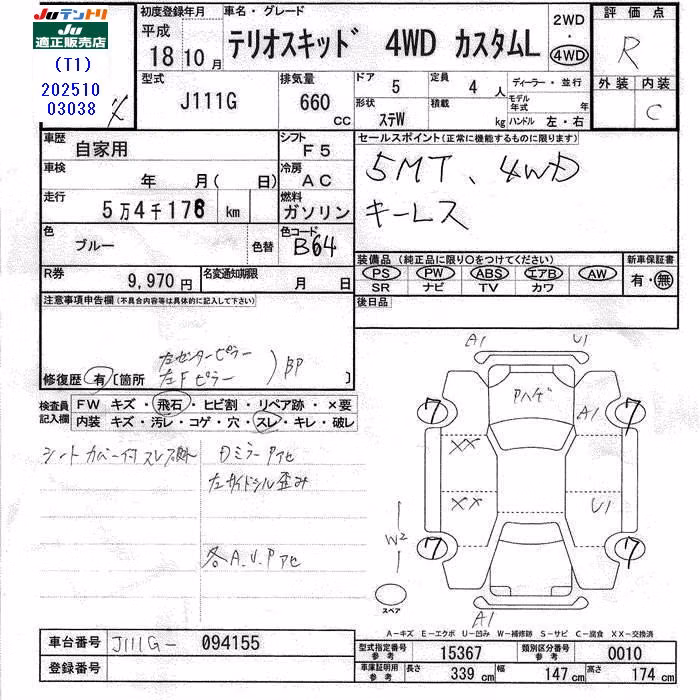 Juテントリ
Ju TENTORI
適正販売店
(T1)
202510
03038
初度登録年月
平成
18 10月
車名・グレード
テリオスキッド 4WD カスタムL
2WD
・
4WD
評価点
R
外装 内装
C
型式
J111G
排気量
660
CC
ドア
5
定員
4人
ディーラー・並行
形状
ステW
積載
kg
モデル年式 年
ハンドル 左・右
車歴
自家用
シフト
F5
車検
年 月( 日)
冷房
AC
走行
5万4千178 km
燃料
ガソリン
色
ブルー
色替
色コード
B64
R券
9,970円
名変通知期限
月 日
セールスポイント(正常に機能するものに限ります)
5MT、4WD
キーレス
装備品(純正品に限り○をつけてください)
新車保証書
PS PW ABS エアB AW
有・無
SR ナビ TV カワ
後日品
注意事項申告欄(不具合内容等は具体的に記入して下さい)
左センターピラー
左Fピラー
BP
修復歴 有 〔箇所 〕
検査員
記入欄
FW キズ・飛石・ヒビ割・リペア跡・×要
内装 キズ・汚レ・コゲ・穴・スレ・キレ・破レ
シートカバー付スレ
DミラーPアセ
左サイドシル歪み
各A.U.Pアセ
A1 U1
Pハゲ
7 A1 7
XX
XX U1
W2
7 7
スペア
A1
A-キズ E-エクボ U-凹み W-補修跡 S-サビ C-腐食 XX-交換済
車台番号
J111G- 094155
登録番号
型式指定番号
参考
15367
類別区分番号
参考
0010
車庫証明用
参考
長さ 339 cm 幅 147 cm 高さ 174 cm